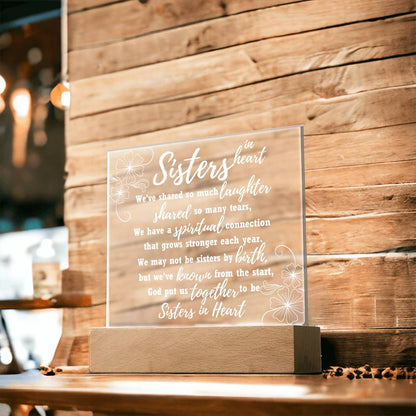 Sisters in heart
We've shared so much laughter
shared so many tears,
We have a spiritual connection
that grows stronger each year,
We may not be sisters by birth,
but we've known from the start,
God put us together to be
Sisters in Heart